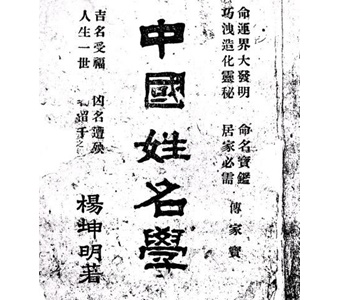 命運界大發明 命名寶鑑
巧洩造化靈秘 居家必需
傳家寶
中國姓名學
吉名受福 凶名遭殃
人生一世
楊坤明著